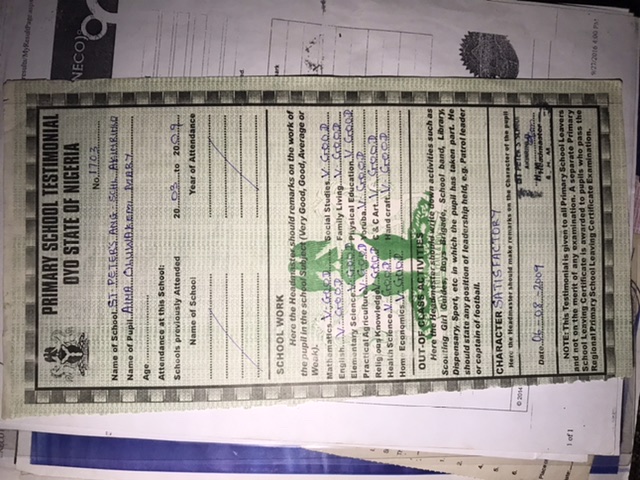 PRIMARY SCHOOL TESTIMONIAL
OYO STATE OF NIGERIA
No. 1103
Name of School ST. PETER'S ANG. SCH.
Name of Pupil AINA OLUWAKEMI MARY
Age
Attendance at this School: 20 03 to 20 09
Schools previously Attended
Name of School Year of Attendance
SCHOOL WORK
Here the Headmaster should remarks on the work of
the pupil in the school Subject (Very Good, Good, Average or
Weak).
Mathematics V. GOOD Social Studies V. GOOD
English V. GOOD Family Living V. GOOD
Elementary Science V. GOOD Physical Education V. GOOD
Practical Agriculture V. GOOD Yoruba V. GOOD
Religious Knowledge V. GOOD C & C Art V. GOOD
Health Science V. GOOD Handcraft V. GOOD
Home Economics V. GOOD
OUT-OF-CLASS ACTIVITIES
Here the Headmaster should write down activities such as
Scouting Girl Guides, Boys Brigade, School band, Library,
Dispensary, Sport, etc in which the pupil has taken part. He
should state any position of leadership held, e.g. Patrol leader
or captain of football.
CHARACTER SATISFACTORY
Here the Headmaster should make remarks on the Character of the pupil
ST PETER'S
Date: 06-08-2009 Headmaster
NOTE: This Testimonial is given to all Primary School Leavers
and not on the merit of any examination. A separate Primary
School Leaving Certificate is awarded to pupils who pass the
Regional Primary School Leaving Certificate Examination.
NECO
9/27/2016 4:00 PM
© 2014
1 of 1